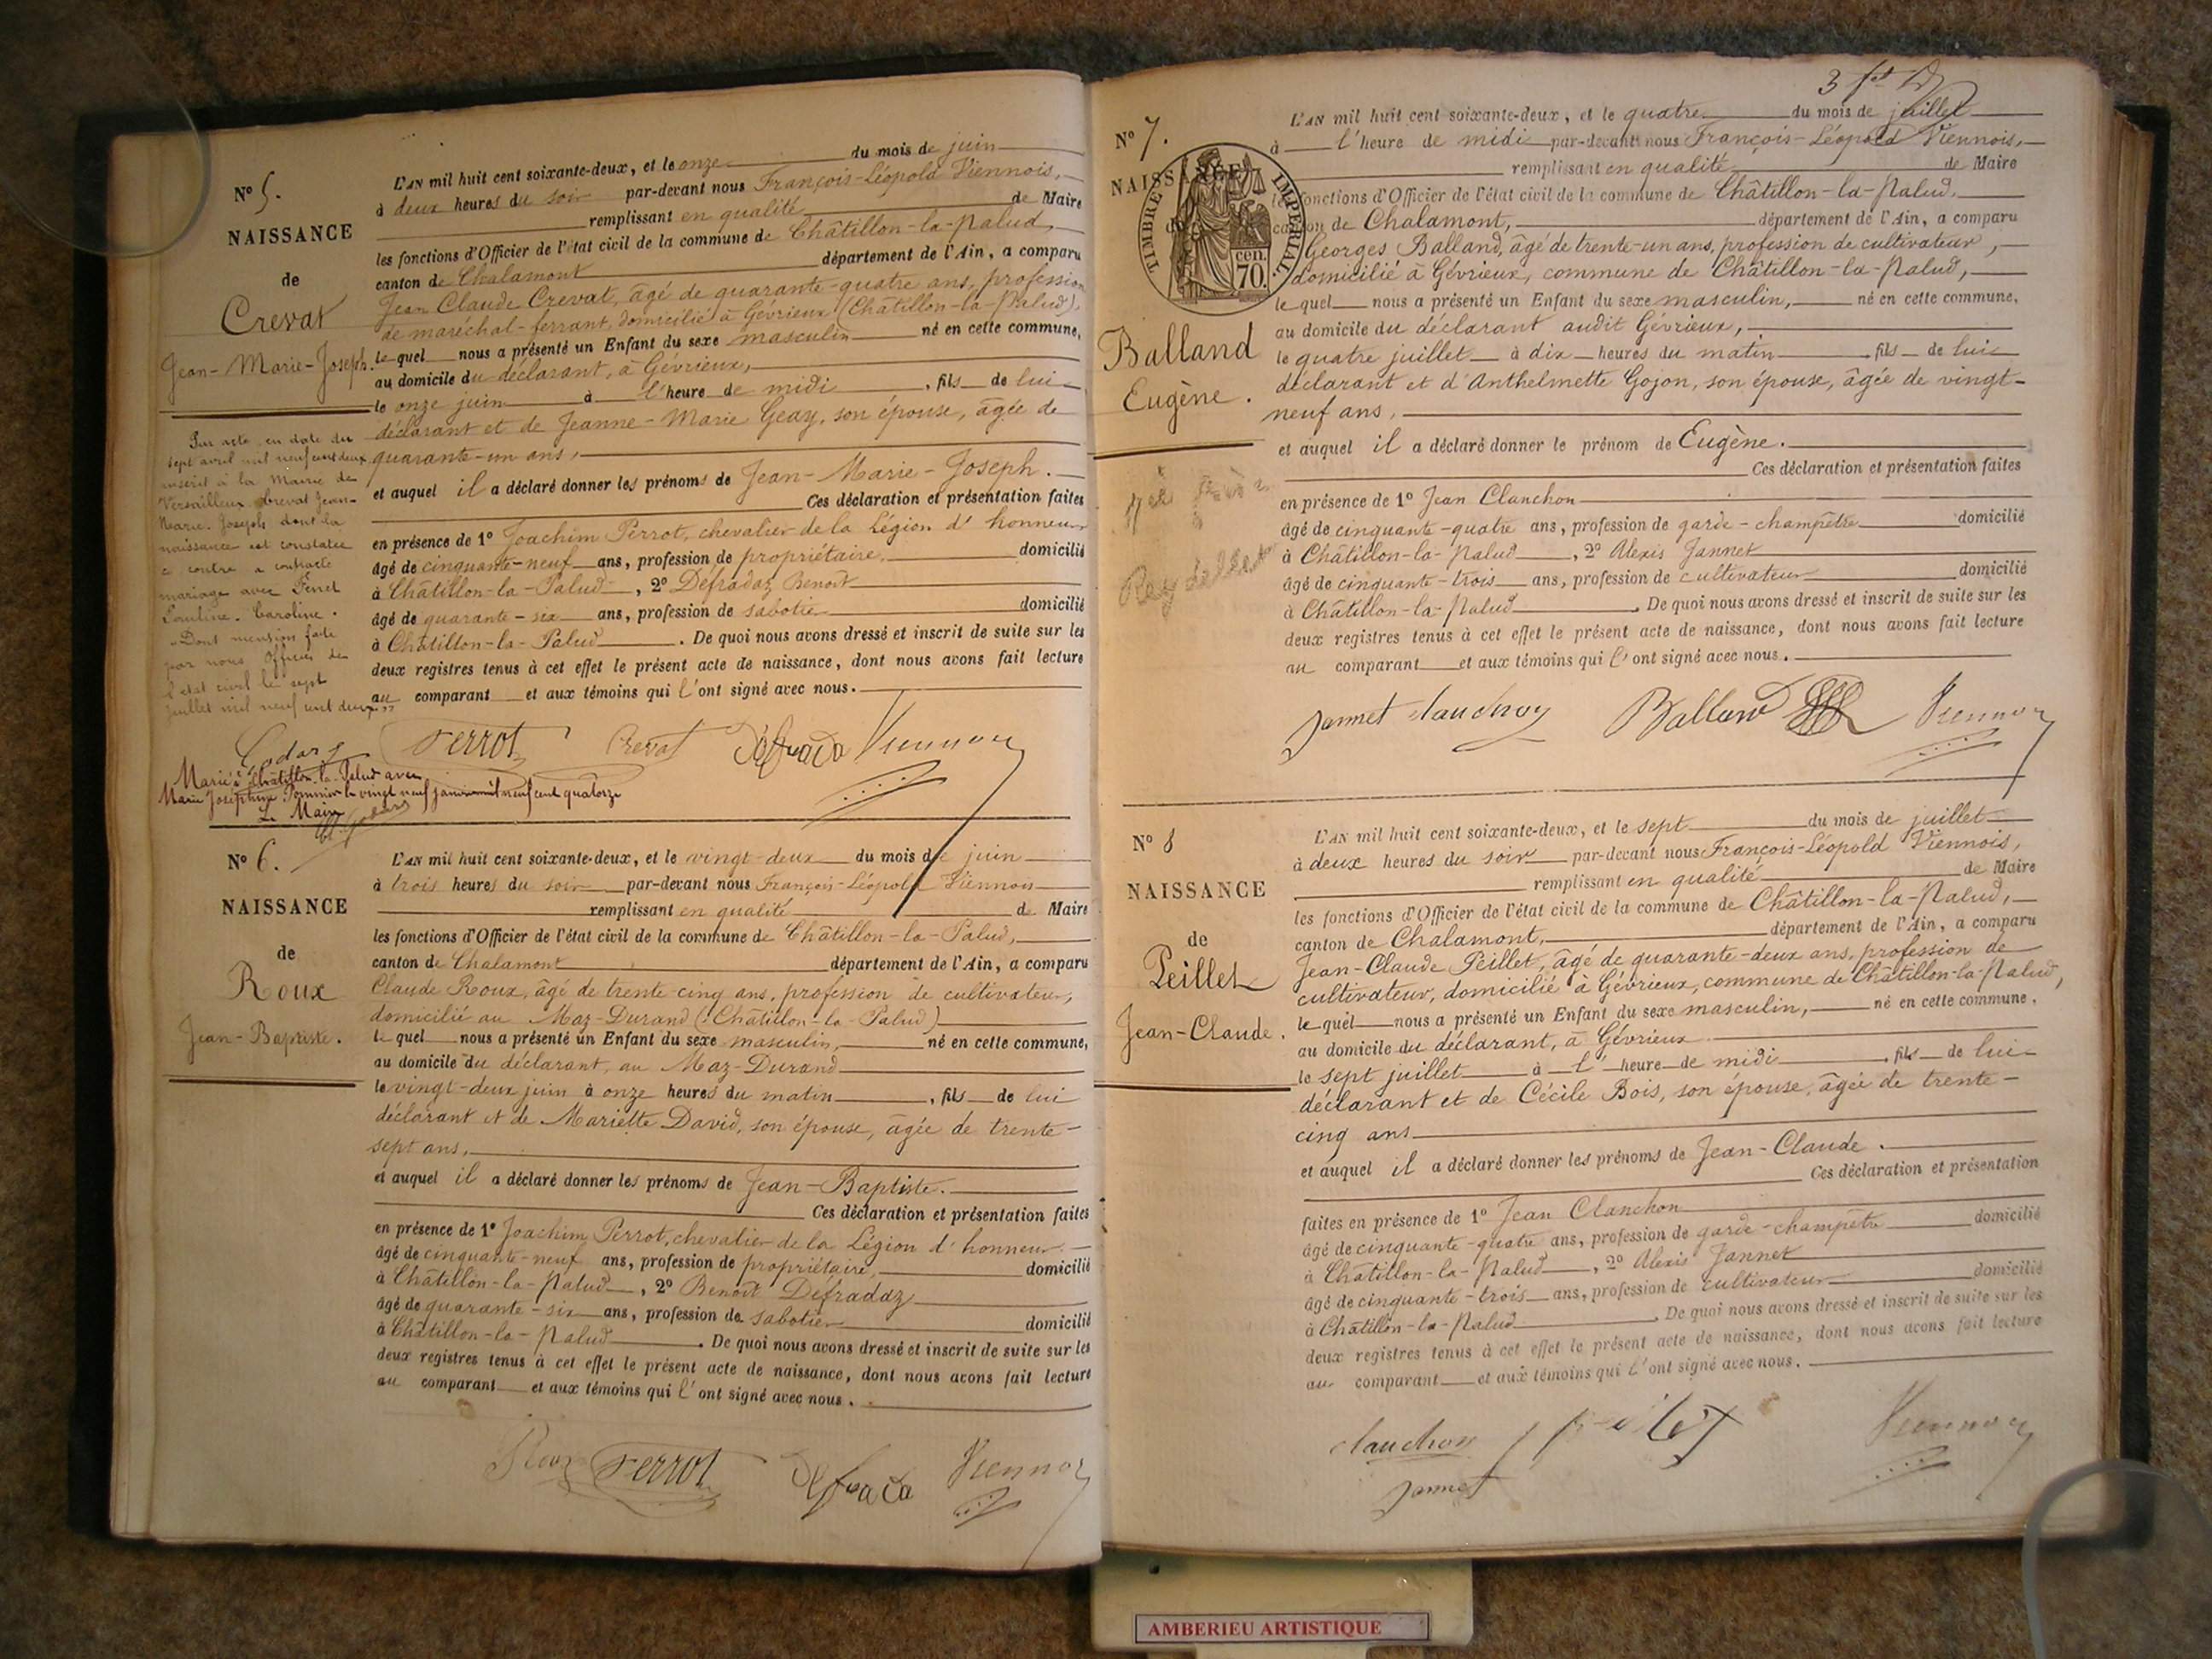 N° 5.
NAISSANCE
de
Crevat
Jean-Marie-Joseph.
L'AN mil huit cent soixante-deux, et le onze du mois de juin
à deux heures du soir par-devant nous François-Léopold Viennois,
remplissant en qualité de Maire
les fonctions d'Officier de l'état civil de la commune de Châtillon-la-Palud,
canton de Chalamont département de l'Ain, a comparu
Jean Claude Crevat, âgé de quarante-quatre ans, profession
de maréchal-ferrant, domicilié à Gévrieux (Châtillon-la-Palud),
le quel nous a présenté un Enfant du sexe masculin né en cette commune,
au domicile du déclarant, à Gévrieux,
le onze juin à l'heure de midi, fils de lui
déclarant et de Jeanne-Marie Geay, son épouse, âgée de
quarante-un ans,
et auquel il a déclaré donner les prénoms de Jean-Marie-Joseph.
Ces déclaration et présentation faites
en présence de 1° Joachim Perrot, chevalier de la Légion d'honneur
âgé de cinquante-neuf ans, profession de propriétaire, domicilié
à Châtillon-la-Palud, 2° Défradaz Benoît
âgé de quarante-six ans, profession de sabotier domicilié
à Châtillon-la-Palud. De quoi nous avons dressé et inscrit de suite sur les
deux registres tenus à cet effet le présent acte de naissance, dont nous avons fait lecture
au comparant et aux témoins qui l'ont signé avec nous.
Par acte en date du
sept avril mil neuf cent deux
inscrit à la Mairie de
Versailleux Crevat Jean-
Marie-Joseph dont la
naissance est constatée
ci contre a contracté
mariage avec
Caroline.
Dont mention faite
par nous Officier de
l'état civil le sept
juillet mil neuf cent deux
Godard Perrot Crevat Defrada Viennois
Marié à Châtillon-la-Palud avec
Marie Joséphine Pommier le vingt neuf janvier mil neuf cent quatorze
Le Maire
N° 6.
NAISSANCE
de
Roux
Jean-Baptiste.
L'AN mil huit cent soixante-deux, et le vingt-deux du mois de juin
à trois heures du soir par-devant nous François-Léopold Viennois
remplissant en qualité de Maire
les fonctions d'Officier de l'état civil de la commune de Châtillon-la-Palud,
canton de Chalamont département de l'Ain, a comparu
Claude Roux, âgé de trente cinq ans, profession de cultivateur,
domicilié au Maz-Durand (Châtillon-la-Palud)
le quel nous a présenté un Enfant du sexe masculin, né en cette commune,
au domicile du déclarant, au Maz-Durand
le vingt-deux juin à onze heures du matin, fils de lui
déclarant et de Mariette David, son épouse, âgée de trente-
sept ans,
et auquel il a déclaré donner les prénoms de Jean-Baptiste.
Ces déclaration et présentation faites
en présence de 1° Joachim Perrot, chevalier de la Légion d'honneur
âgé de cinquante-neuf ans, profession de propriétaire, domicilié
à Châtillon-la-Palud, 2° Benoît Défradaz
âgé de quarante-six ans, profession de sabotier domicilié
à Châtillon-la-Palud. De quoi nous avons dressé et inscrit de suite sur les
deux registres tenus à cet effet le présent acte de naissance, dont nous avons fait lecture
au comparant et aux témoins qui l'ont signé avec nous.
Roux Perrot Defrada Viennois
N° 7.
NAISSANCE
TIMBRE IMPÉRIAL
70 cen.
Balland
Eugène.
L'AN mil huit cent soixante-deux, et le quatre du mois de juillet
à l'heure de midi par-devant nous François-Léopold Viennois,
remplissant en qualité de Maire
les fonctions d'Officier de l'état civil de la commune de Châtillon-la-Palud,
canton de Chalamont, département de l'Ain, a comparu
Georges Balland, âgé de trente-un ans, profession de cultivateur,
domicilié à Gévrieux, commune de Châtillon-la-Palud,
le quel nous a présenté un Enfant du sexe masculin, né en cette commune,
au domicile du déclarant audit Gévrieux,
le quatre juillet à dix heures du matin, fils de lui
déclarant et d'Anthelmette Gojon, son épouse, âgée de vingt-
neuf ans,
et auquel il a déclaré donner le prénom de Eugène.
Ces déclaration et présentation faites
en présence de 1° Jean Clanchon
âgé de cinquante-quatre ans, profession de garde-champêtre domicilié
à Châtillon-la-Palud, 2° Alexis Jannet
âgé de cinquante-trois ans, profession de cultivateur domicilié
à Châtillon-la-Palud. De quoi nous avons dressé et inscrit de suite sur les
deux registres tenus à cet effet le présent acte de naissance, dont nous avons fait lecture
au comparant et aux témoins qui l'ont signé avec nous.
Jannet Balland Viennois
N° 8
NAISSANCE
de
Peillet
Jean-Claude.
L'AN mil huit cent soixante-deux, et le sept du mois de juillet
à deux heures du soir par-devant nous François-Léopold Viennois,
remplissant en qualité de Maire
les fonctions d'Officier de l'état civil de la commune de Châtillon-la-Palud,
canton de Chalamont, département de l'Ain, a comparu
Jean-Claude Peillet, âgé de quarante-deux ans, profession de
cultivateur, domicilié à Gévrieux, commune de Châtillon-la-Palud,
le quel nous a présenté un Enfant du sexe masculin, né en cette commune,
au domicile du déclarant, à Gévrieux
le sept juillet à l'heure de midi, fils de lui
déclarant et de Cécile Bois, son épouse, âgée de trente-
cinq ans
et auquel il a déclaré donner les prénoms de Jean-Claude.
Ces déclaration et présentation
faites en présence de 1° Jean Clanchon
âgé de cinquante-quatre ans, profession de garde-champêtre domicilié
à Châtillon-la-Palud, 2° Alexis Jannet
âgé de cinquante-trois ans, profession de cultivateur domicilié
à Châtillon-la-Palud. De quoi nous avons dressé et inscrit de suite sur les
deux registres tenus à cet effet le présent acte de naissance, dont nous avons fait lecture
au comparant et aux témoins qui l'ont signé avec nous.
Clanchon Peillet Viennois
Jannet
AMBERIEU ARTISTIQUE